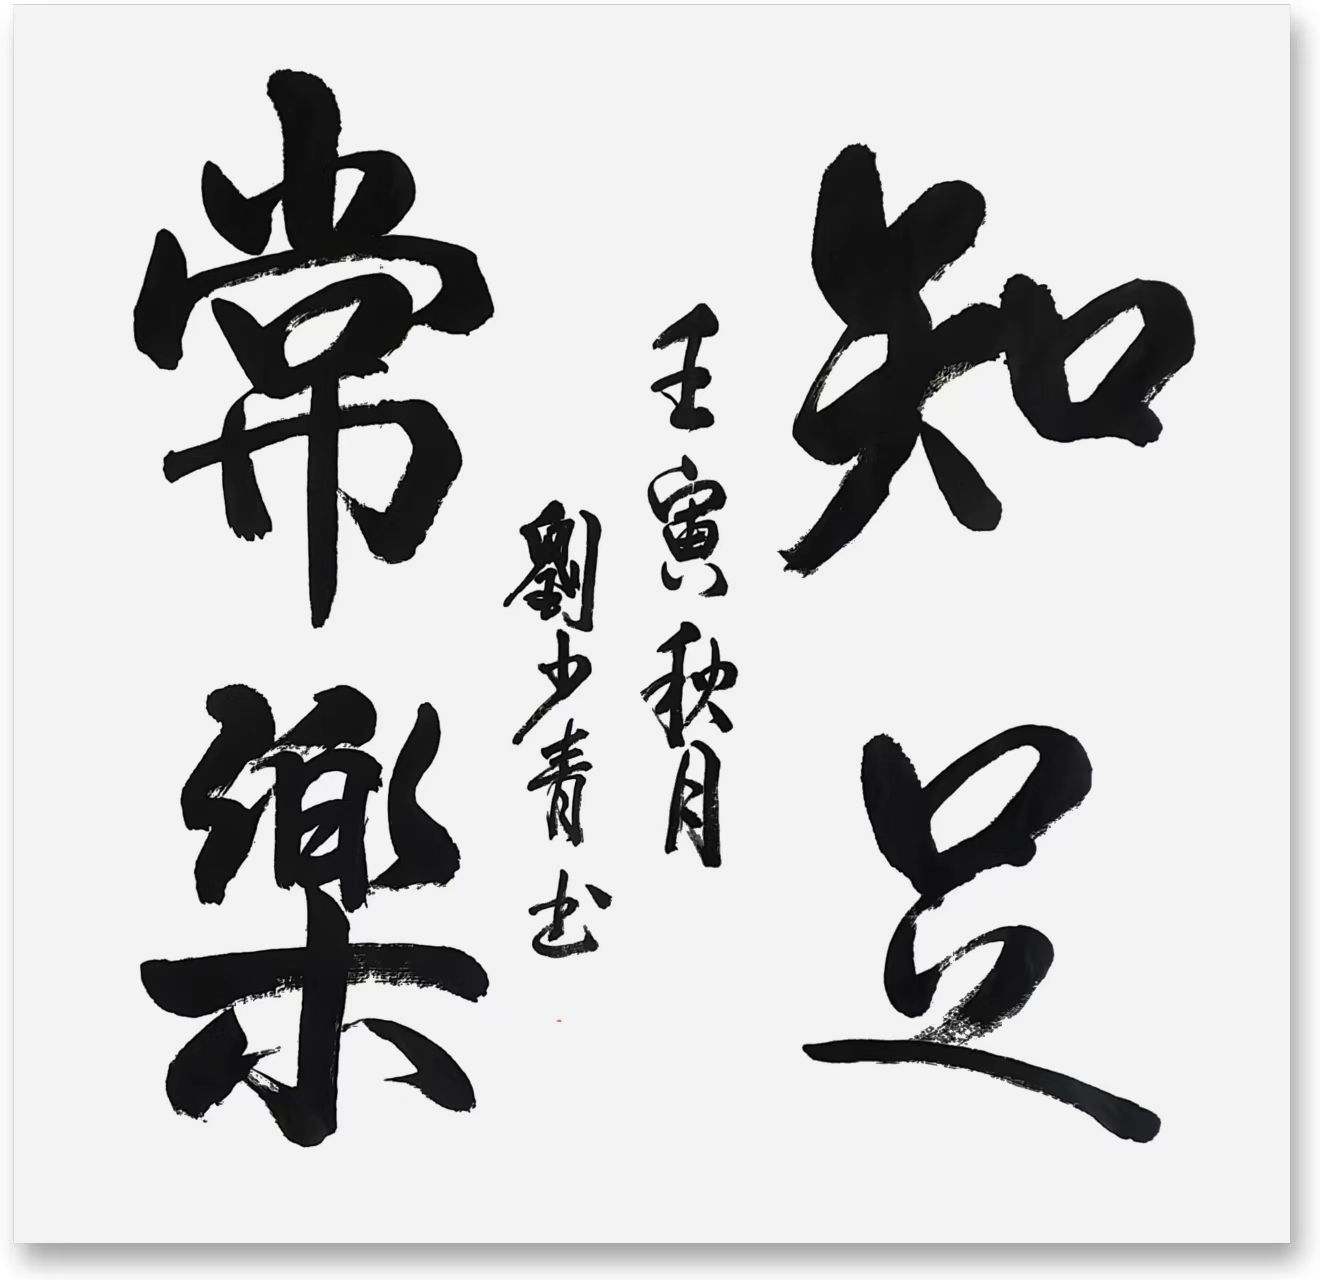 知足
常樂
壬寅秋月
劉少青书